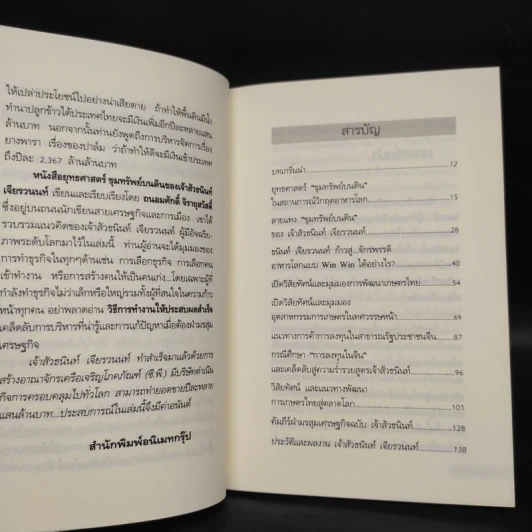 ให้เปล่าประโยชน์ไปอย่างน่าเสียดาย ถ้าทำให้พื้นดินมีน้ำ
ทำนาปลูกข้าวได้ประเทศไทยจะมีเงินเพิ่มอีกปีละหลายแสน
ล้านบาท นอกจากนั้นท่านยังพูดถึงการบริหารจัดการเรื่อง
ยางพารา เรื่องของปาล์ม ว่าถ้าทำให้ดีจะมีเงินเข้าประเทศ
ถึงปีละ 2,367 ล้านล้านบาท
หนังสือยุทธศาสตร์ ขุมทรัพย์บนดินของเจ้าสัวธนินท์
เจียรวนนท์ เขียนและเรียบเรียงโดย ถนอมศักดิ์ จิรายุสวัสดิ์
ซึ่งอยู่บนถนนนักเขียนสายเศรษฐกิจและการเมือง เขาได้
รวบรวมแนวคิดของเจ้าสัวธนินท์ เจียรวนนท์ ผู้มีอัจฉริย-
ภาพระดับโลกมาไว้ในเล่มนี้ ท่านผู้อ่านจะได้มุมมองของ
การทำธุรกิจในทุกๆด้านเช่น การเลือกธุรกิจ การเลือกคน
เข้าทำงาน หรือการสร้างคนให้เป็นคนเก่ง...โดยเฉพาะผู้ที่
กำลังทำธุรกิจไม่ว่าเล็กหรือใหญ่รวมทั้งผู้ที่สนใจในความก้าว
หน้าทุกคน อย่าพลาดอ่าน วิธีการทำงานให้ประสบผลสำเร็จ
เคล็ดลับการบริหารที่น่ารู้และการแก้ปัญหาเมื่อต้องฝ่ามรสุม
เศรษฐกิจ
เจ้าสัวธนินท์ เจียรวนนท์ ทำสำเร็จมาแล้วด้วยการ
สร้างอาณาจักรเครือเจริญโภคภัณฑ์ (ซี.พี.) มีบริษัทดำเนิน
กิจการครอบคลุมไปทั่วโลก สามารถทำยอดขายปีละหลาย
แสนล้านบาท...ประสบการณ์ในเล่มนี้จึงมีค่าอนันต์
สำนักพิมพ์อนิเมทกรุ๊ป
สารบัญ
บทเกริ่นนำ 12
ยุทธศาสตร์ "ขุมทรัพย์บนดิน"
ในสถานการณ์วิกฤตอาหารโลก 15
ลายแทง "ขุมทรัพย์บนดิน"
ของ เจ้าสัวธนินท์ เจียรวนนท์ 28
ธนินท์ เจียรวนนท์ ก้าวสู่...จักรพรรดิ
อาหารโลกแบบ Win Win ได้อย่างไร? 40
เปิดวิสัยทัศน์และมุมมองการพัฒนาเกษตรไทย 54
เปิดวิสัยทัศน์และมุมมอง
อุตสาหกรรมการเกษตรในทศวรรษหน้า 69
แนวทางการค้าการลงทุนในสาธารณรัฐประชาชนจีน 87
กรณีศึกษา "การลงทุนในจีน"
และเคล็ดลับสู่ความร่ำรวยสูตรเจ้าสัวธนินท์ 96
วิสัยทัศน์ และแนวทางพัฒนา
การเกษตรไทยสู่ตลาดโลก 101
คัมภีร์ฝ่ามรสุมเศรษฐกิจฉบับ เจ้าสัวธนินท์ 128
ประวัติและผลงาน เจ้าสัวธนินท์ เจียรวนนท์ 138